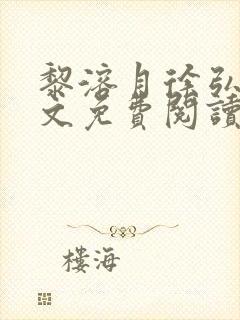 黎溶月徐弘
文免費閱讀
樓海